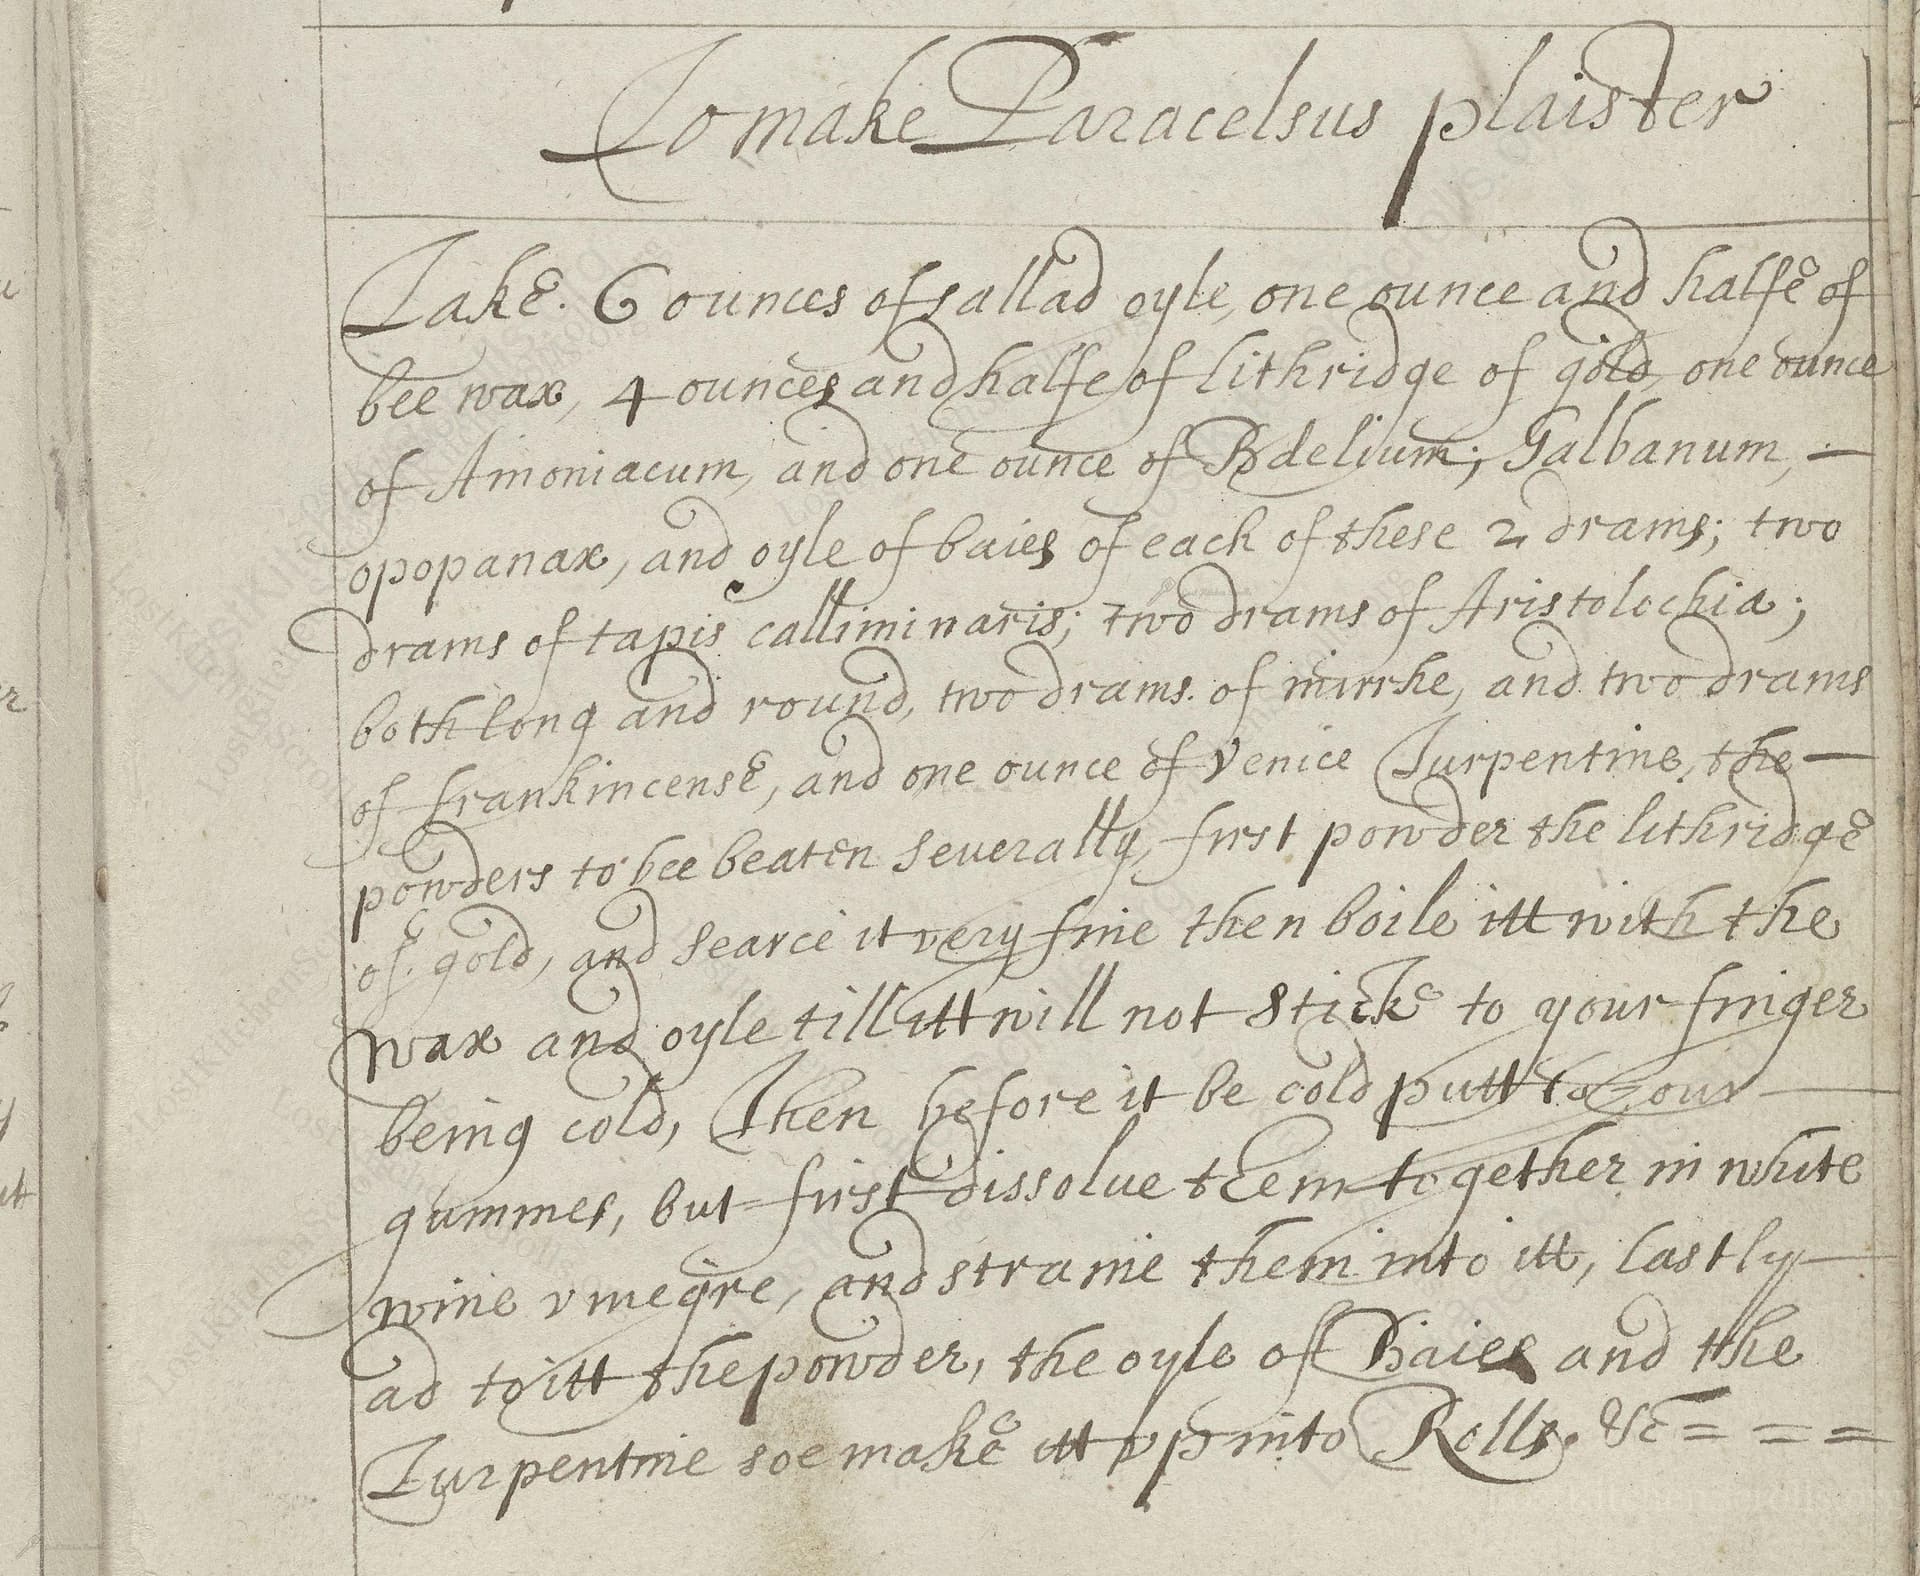 To make Paracelsus plaister
Take. 6 ounces of sallad oyle, one ounce and halfe of
bee wax, 4 ounces and halfe of lithridge of gold, one ounce
of Amoniacum, and one ounce of Bdelium; Galbanum, —
opopanax, and oyle of baies of each of these 2 drams; two
drams of tapis calliminaris; two drams of Aristolochia;
both long and round, two drams. of mirrhe, and two drams
of frankincense, and one ounce of Venice Turpentine, the —
powders to bee beaten severally, first powder the lithridge
of. gold, and searce it very fine then boile itt with the
wax and oyle till itt will not stick to your finger
being cold, Then before it be cold putt to your —
gummes, but first dissolve them together in white
wine vinegre, and straine them into itt, lastly —
ad to itt the powder, the oyle of Baies and the
Turpentine soe make itt vp into Rolls. &c = = =